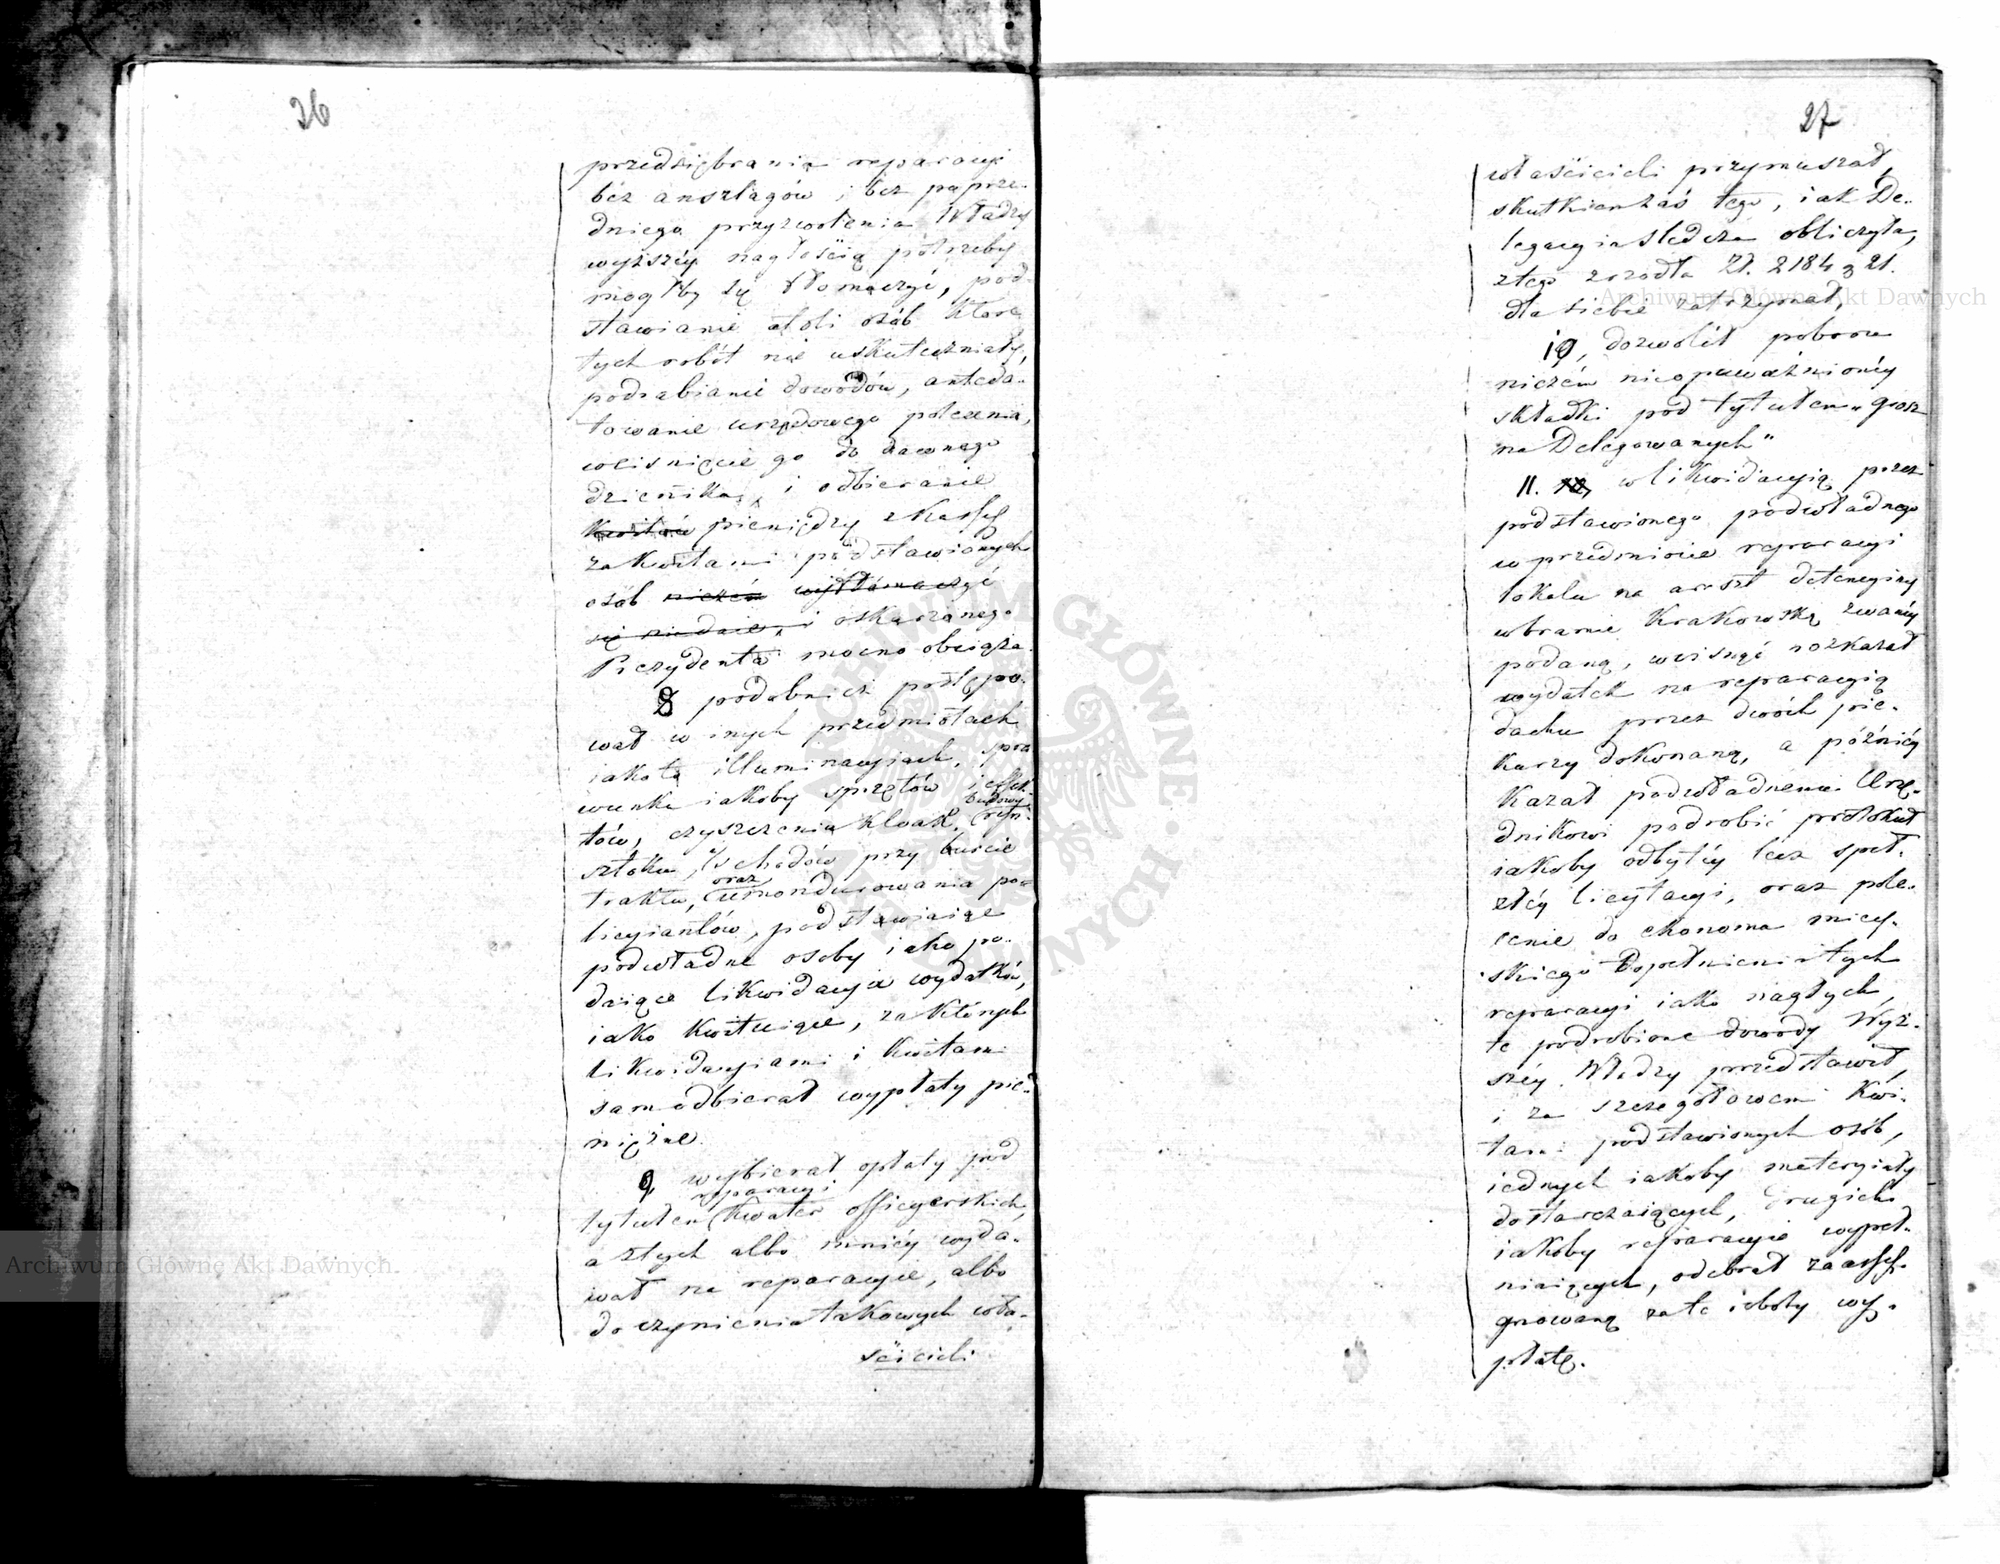 26
przedsiębrania reparacyi
béz anszlagów i bez poprze-
dniego przyzwolenia Władzy
wyższéy nagłością potrzeby
mogłby się tłomaczyć, pod-
stawianie atoli osób które
tych robót nie uskuteczniały,
podrabianie dowodów, anteda-
towanie urzędowego polecenia,
wcisnięcie go do dawnego
dziennika, i odbieranie
kwitów pieniędzy z Kassy
za kwitami podstawionych
osób niczém wytłómaczyć
się nie daie, i oskarzonego
Prezydenta mocno obciąża.
8 podobniez postępo-
wał w inych przedmiotach
iakoto illuminacyiach, spra
wunku iakoby sprzętów i effek-
tów, czyszczenia kloak, budowy ryn-
sztoku, schodów przy buście
traktu, oraz umondurowania po-
licyiantów, podstawiaiąc
podwładne osoby iako po-
daiące likwidacyie wydatków,
iako kwituiące, za których
likwidacyiami i kwitami
sam odbierał wypłaty pie-
nięzne.
9 wybierał opłaty pod
tytułem reparacyi kwater officyerskich,
a z tych albo mniéy wyda-
wał na reparacyie, albo
do czynienia takowych wła-
ścicieli
27
właścicieli przymuszał,
skutkiem zaś tego, iak De-
legacyia śledcza obliczyła,
z tego zrzodła Zł. 2184 g 21.
dla siebie zatrzymał,
10, dozwolił poboru
niczém nieopoważnionéy
składki pod tytułem „grosz
na Delegowanych"
11. w likwidacyią przez
podstawionego podwładnego
w przedmiocie reparacyi
lokalu na areszt detencyiny
w bramie Krakowską zwanéy
podaną, wcisnąć rozkazał
wydatek na reparacyią
dachu przez dwóch pie-
karzy dokonaną, a późniéy
kazał podwładnemu Urzę-
dnikowi podrobić protokuł
iakoby odbytéy lecz speł-
złéy licytacyi, oraz pole-
cenie do ekonoma miey-
skiego dopełnienia tych
reparacyi iako nagłych,
te podrobione dowody Wyż-
széy Władzy przedstawił,
i za szczegółowemi kwi-
tami podstawionych osób,
iednych iakoby materyiały
dostarczaiących, drugich
iakoby reparacyie wypeł-
niaiących, odebrał zaassy-
gnowaną za te roboty wy-
płatę.
Archiwum Główne Akt Dawnych
Archiwum Główne Akt Dawnych
ARCHIWUM GŁÓWNE AKT DAWNYCH